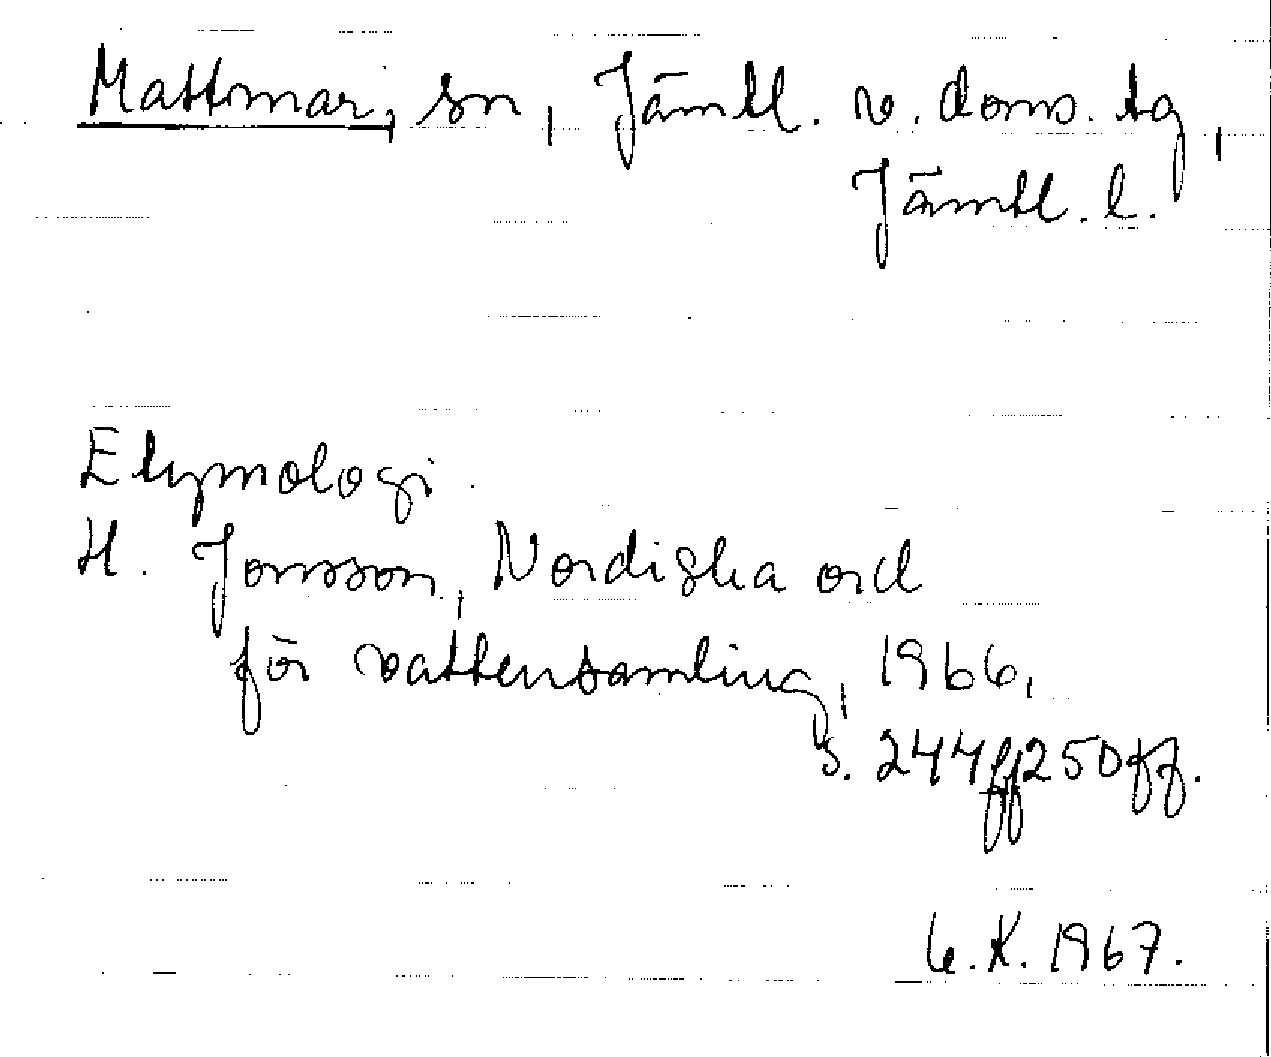 Mattmar, sn, Jämtl. v. doms. tg,
Jämtl. l.
Etymologi.
H. Jonsson, Nordiska ord
för vattensamling, 1966,
s. 244ff 250ff.
K. 1967.